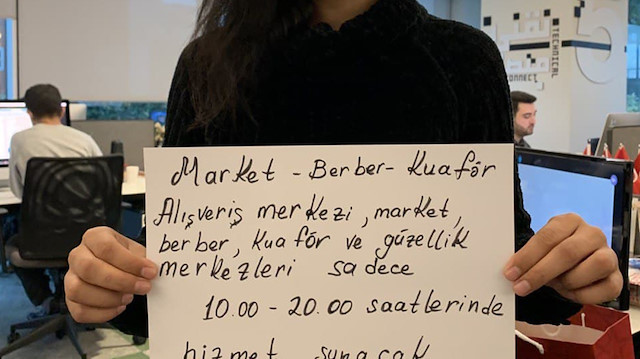 Market - Berber - Kuaför
Alışveriş merkezi, market,
berber, kuaför ve güzellik
merkezleri sadece
10.00 - 20.00 saatlerinde
hizmet sunacak
TECHNICAL
CONNECT